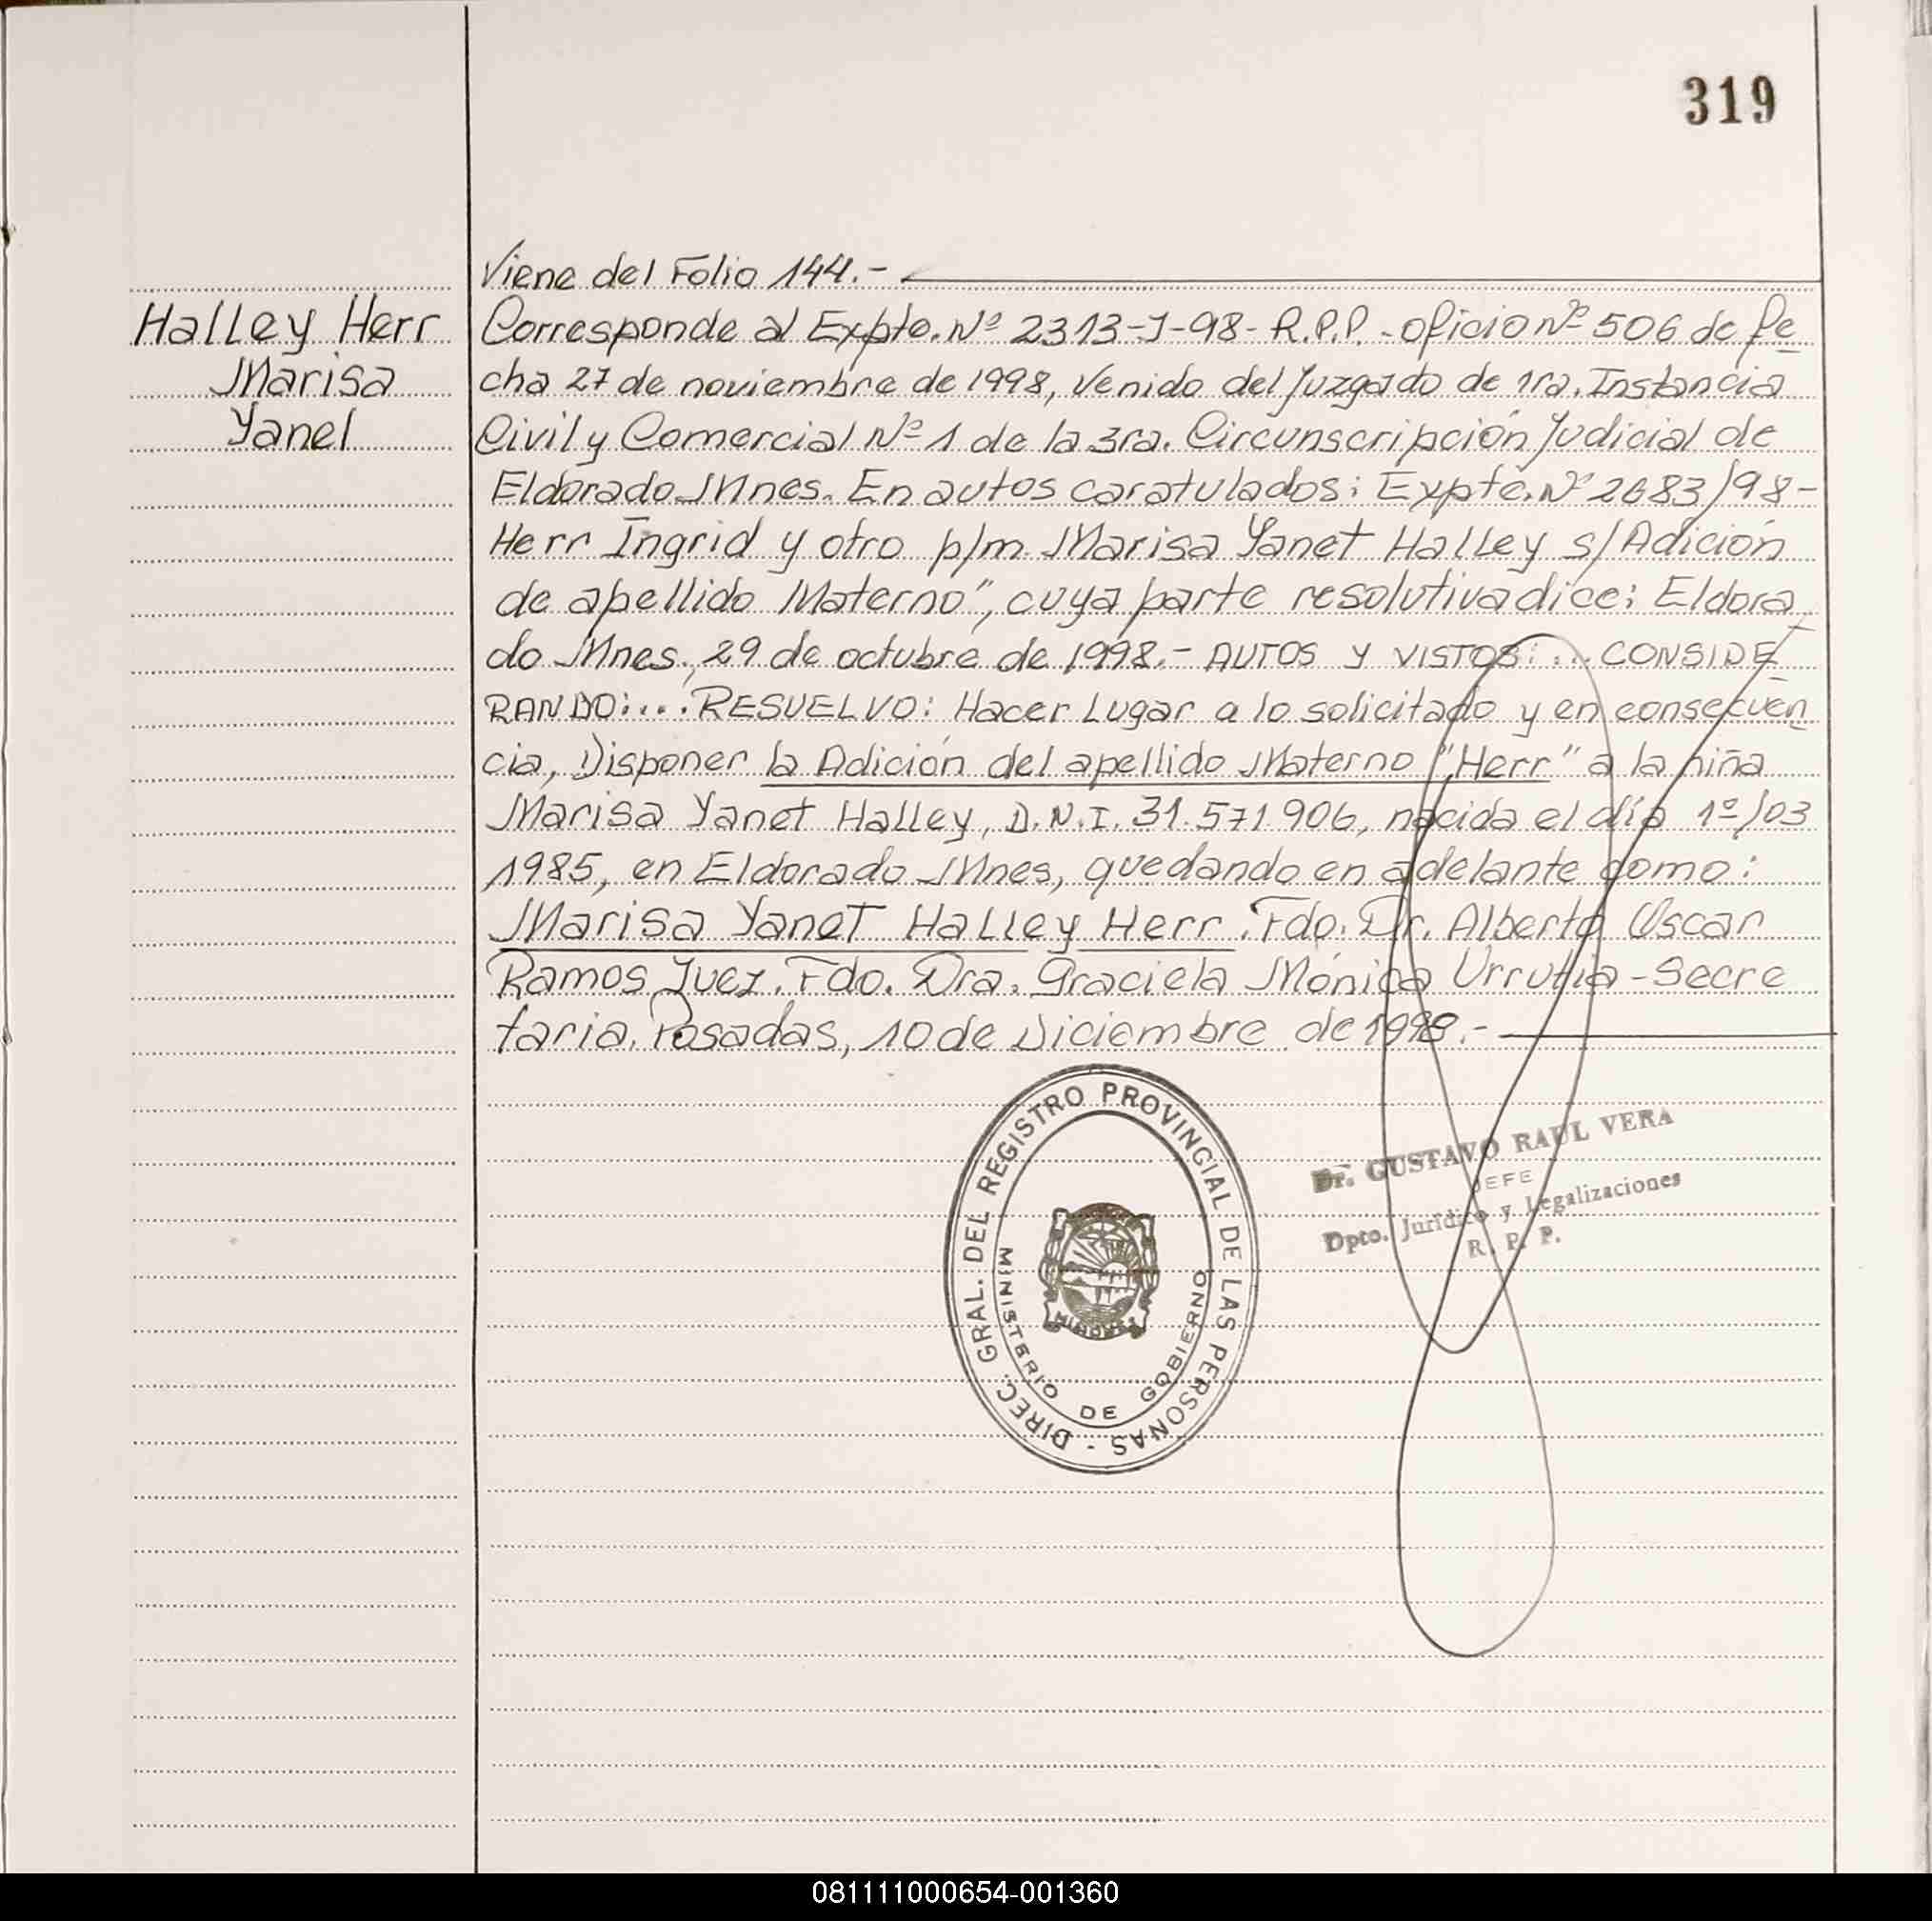 319
Viene del Folio 144.-
Halley Herr
Marisa
Yanel
Corresponde al Expte. Nº 2313-J-98- R.P.P. - oficio Nº 506 de fe
cha 27 de noviembre de 1998, Venido del Juzgado de 1ra. Instancia
Civil y Comercial Nº 1 de la 3ra. Circunscripción Judicial de
Eldorado Mnes. En autos caratulados: Expte. Nº 2683/98-
Herr Ingrid y otro p/m. Marisa Yanet Halley s/Adición
de apellido Materno", cuya parte resolutiva dice: Eldora
do Mnes., 29 de octubre de 1998.- AUTOS Y VISTOS:... CONSIDE
RANDO:... RESUELVO: Hacer Lugar a lo solicitado y en consecuen
cia, Disponer la Adición del apellido Materno "Herr" a la niña
Marisa Yanet Halley, D.N.I. 31.571.906, nacida el día 1º/03
1985, en Eldorado Mnes, quedando en adelante como:
Marisa Yanet Halley Herr. Fdo. Dr. Alberto Oscar
Ramos Juez. Fdo. Dra. Graciela Mónica Urrutia - Secre
taria. Posadas, 10 de Diciembre de 1998.-
DIREC. GRAL. DEL REGISTRO PROVINCIAL DE LAS PERSONAS -
MINISTERIO DE GOBIERNO
MISIONES
Dr. GUSTAVO RAUL VERA
JEFE
Dpto. Jurídico y Legalizaciones
R. P. P.
081111000654-001360